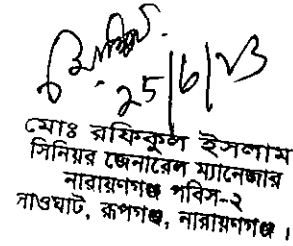 25/6/23
মোঃ রফিকুল ইসলাম
সিনিয়র জেনারেল ম্যানেজার
নারায়ণগঞ্জ পবিস-২
সাওঘাট, রূপগঞ্জ, নারায়ণগঞ্জ।